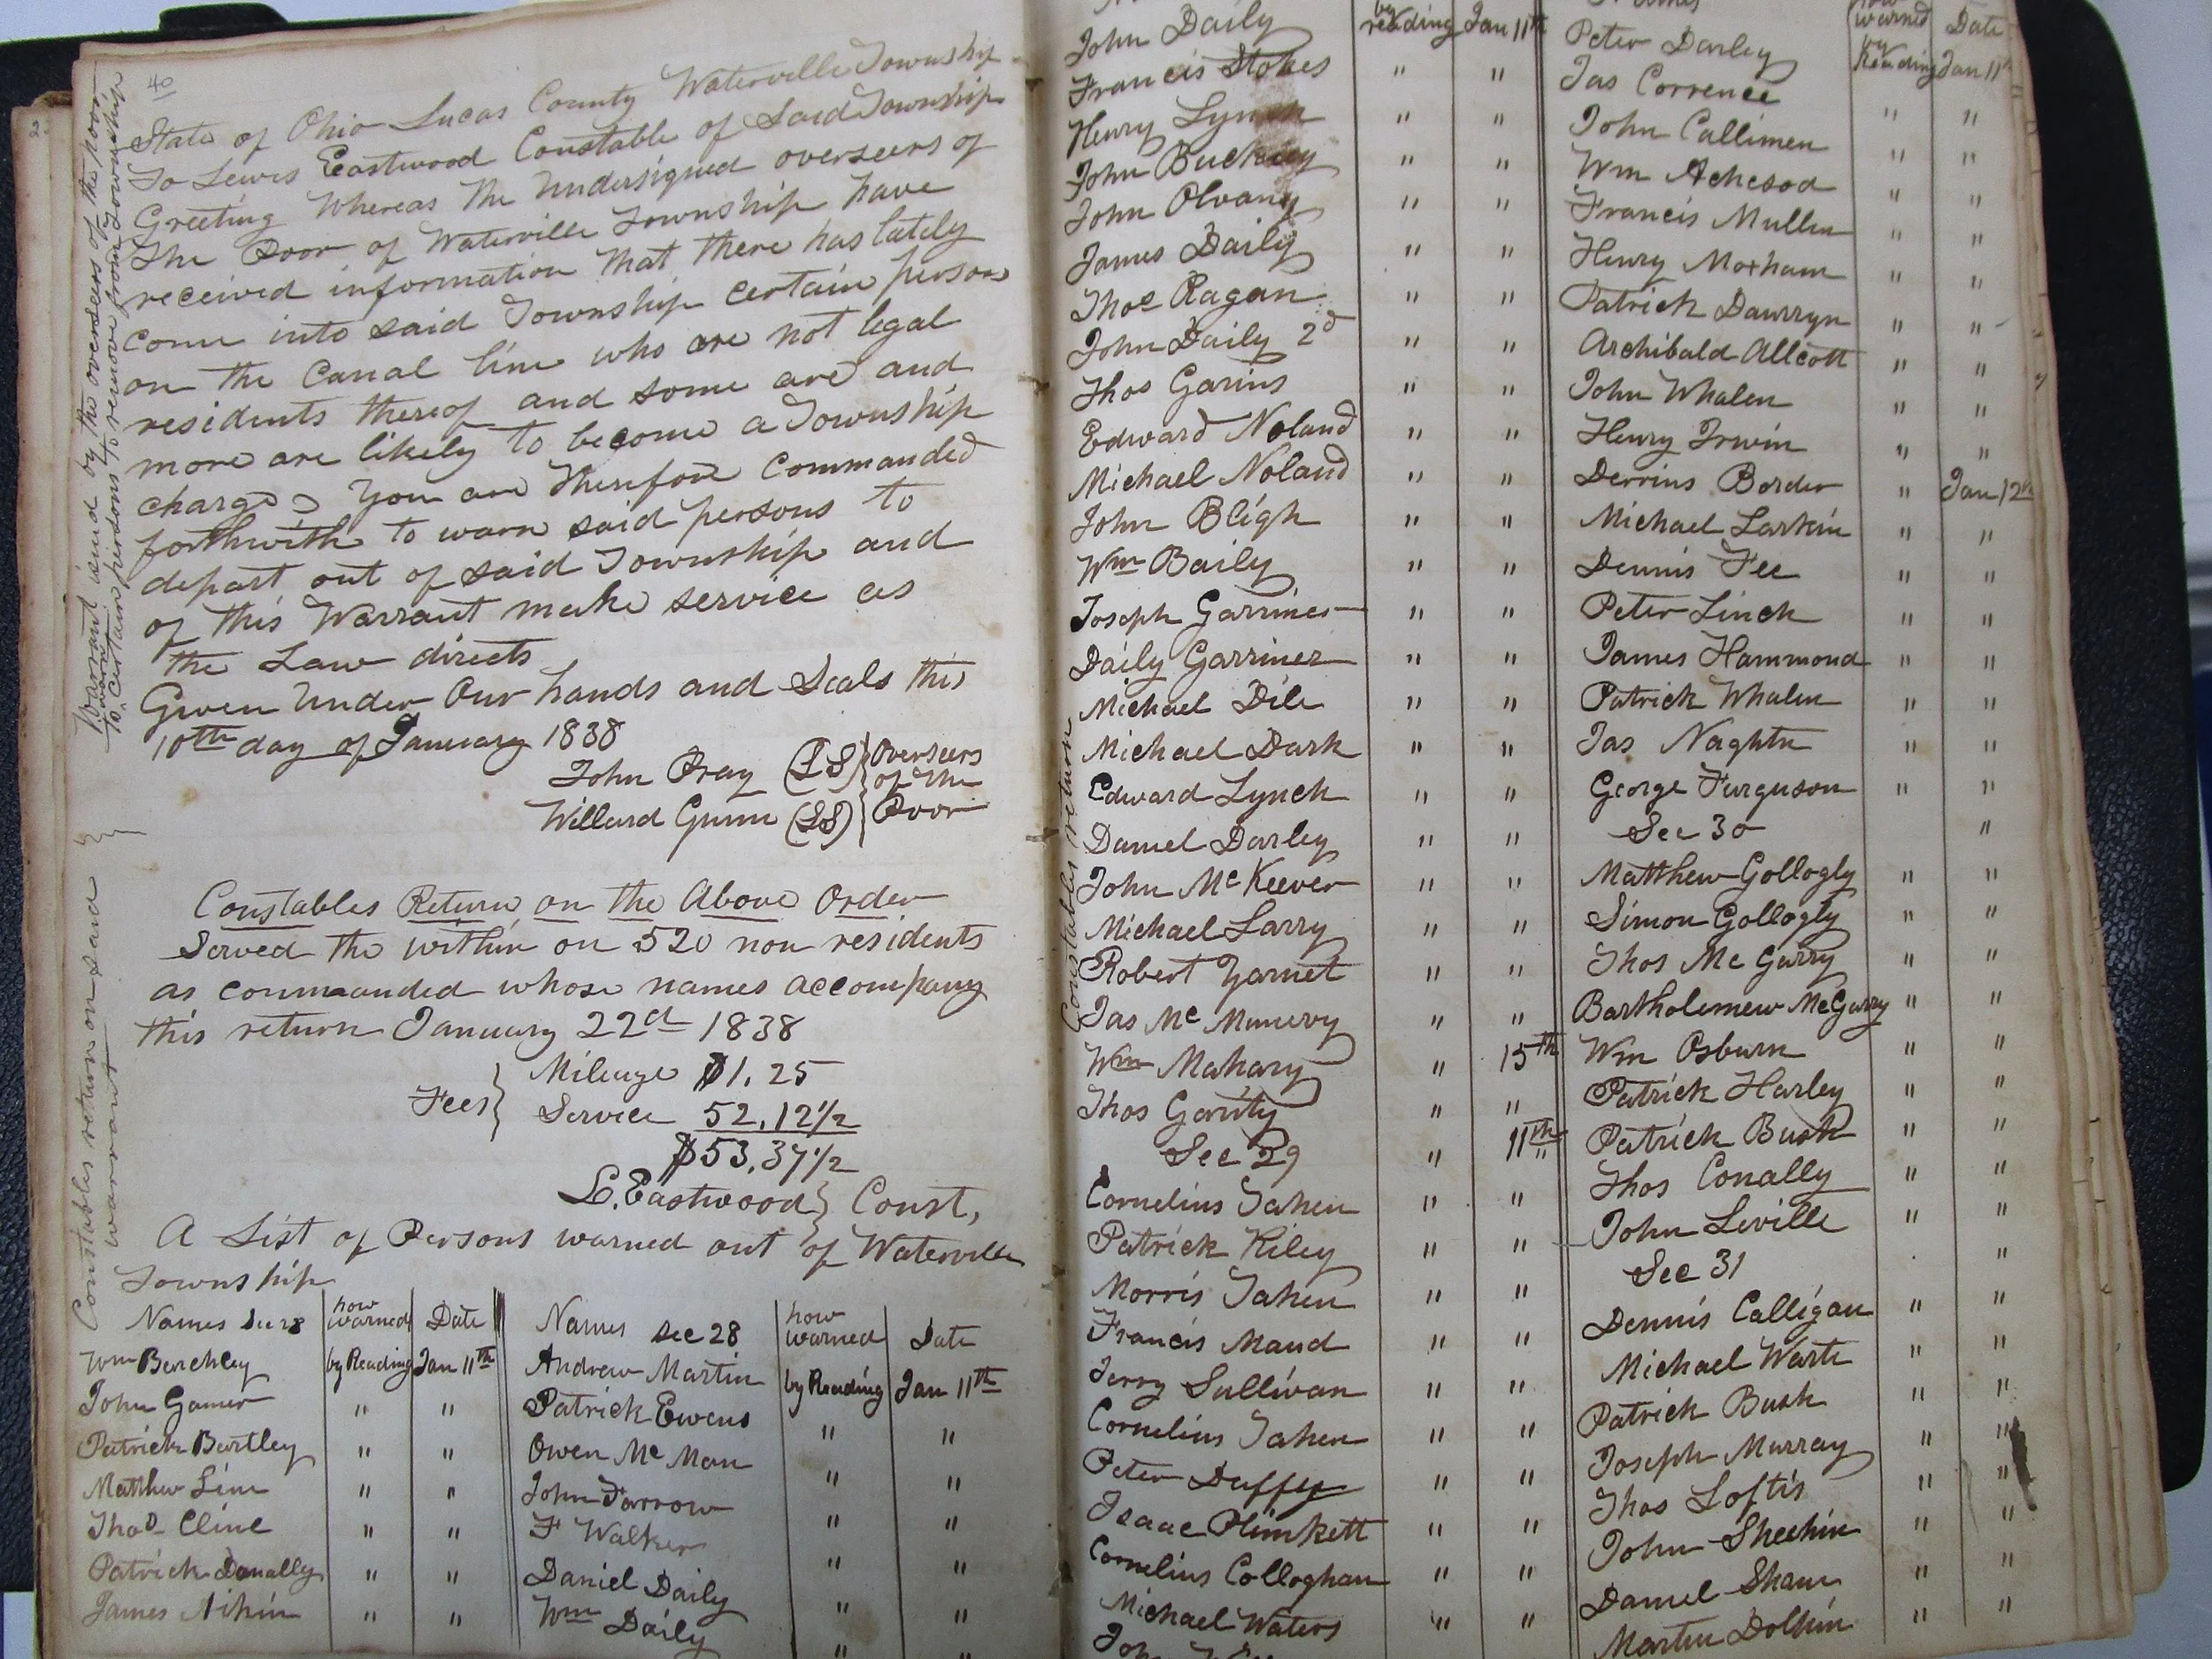 40
State of Ohio Lucas County Waterville Township
To Lewis Eastwood Constable of Said Township
Greeting Whereas the Undersigned overseers of
the Poor of Waterville Township have
received information that there has lately
come into said Township certain persons
on the Canal line who are not legal
residents thereof and some are and
more are likely to become a Township
charge You are therefore Commanded
forthwith to warn said persons to
depart out of said Township and
of this Warrant make service as
the Law directs
Given Under Our hands and Seals this
10th day of January 1838
John Pray (LS) Overseers
of the
Willard Gunn (LS) Poor
Warrant issued by the overseers of the poor
to warn certain persons to remove from Township
Constables Return on the Above Order
Served the within on 520 non residents
as commaanded whose names accompany
this return January 22d 1838
Fees Mileage $1.25
Service 52.12 1/2
$53.37 1/2
L. Eastwood Const,
Constables return on said
warrant
A List of Persons warned out of Waterville
Township
Names Sec 28 how warned Date Names Sec 28 how warned Date
Wm Berchley by Reading Jan 11th Andrew Martin by Reading Jan 11th
John Gamer " " Patrick Ewens " "
Patrick Bartley " " Owen Mc Man " "
Matthew Line " " John Farrow " "
Thos Cline " " F Walker " "
Patrick Donally " " Daniel Daily " "
James Aikin " " Wm Daily " "
Constables return
John Daily by reading Jan 11th
Francis Stokes " "
Henry Lynch " "
John Buckley " "
John Olvany " "
James Daily " "
Thos Ragan " "
John Daily 2d " "
Thos Garins " "
Edward Noland " "
Michael Noland " "
John Bligh " "
Wm Baily " "
Joseph Garriner " "
Daily Garriner " "
Michael Dile " "
Michael Dark " "
Edward Lynch " "
Daniel Darley " "
John McKeever " "
Michael Larry " "
Robert Yarnet " "
Jas Mc Munervy " "
Wm Mahary " 15th
Thos Garity " "
Sec 29 " 11th
Cornelius Tahen " "
Patrick Kiley " "
Morris Tahen " "
Francis Maud " "
Jerry Sullivan " "
Cornelius Tahen " "
Peter Duffey " "
Isaac Plimkett " "
Cornelius Colloghan " "
Michael Waters " "
how warned Date
Peter Darley by Reading Jan 11th
Jas Correnee " "
John Callimen " "
Wm Acheson " "
Francis Mullen " "
Henry Moxham " "
Patrick Dawrryn " "
Archibald Allcott " "
John Whalen " "
Henry Irwin " "
Derrins Border " Jan 12th
Michael Larkin " "
Dennis Fee " "
Peter Linch " "
James Hammond " "
Patrick Whalen " "
Jas Naghtn " "
George Furguson " "
Sec 30 "
Matthew Gollogly " "
Simon Gollogly " "
Thos Mc Garry " "
Bartholemew McGarry " "
Wm Osburn " "
Patrick Harley " "
Patrick Bush " "
Thos Conally " "
John Leville " "
Sec 31 "
Dennis Calligan " "
Michael Warte " "
Patrick Bush " "
Joseph Murray " "
Thos Loftis " "
John Sheehin " "
Daniel Shaw " "
Martin Dolhin " "